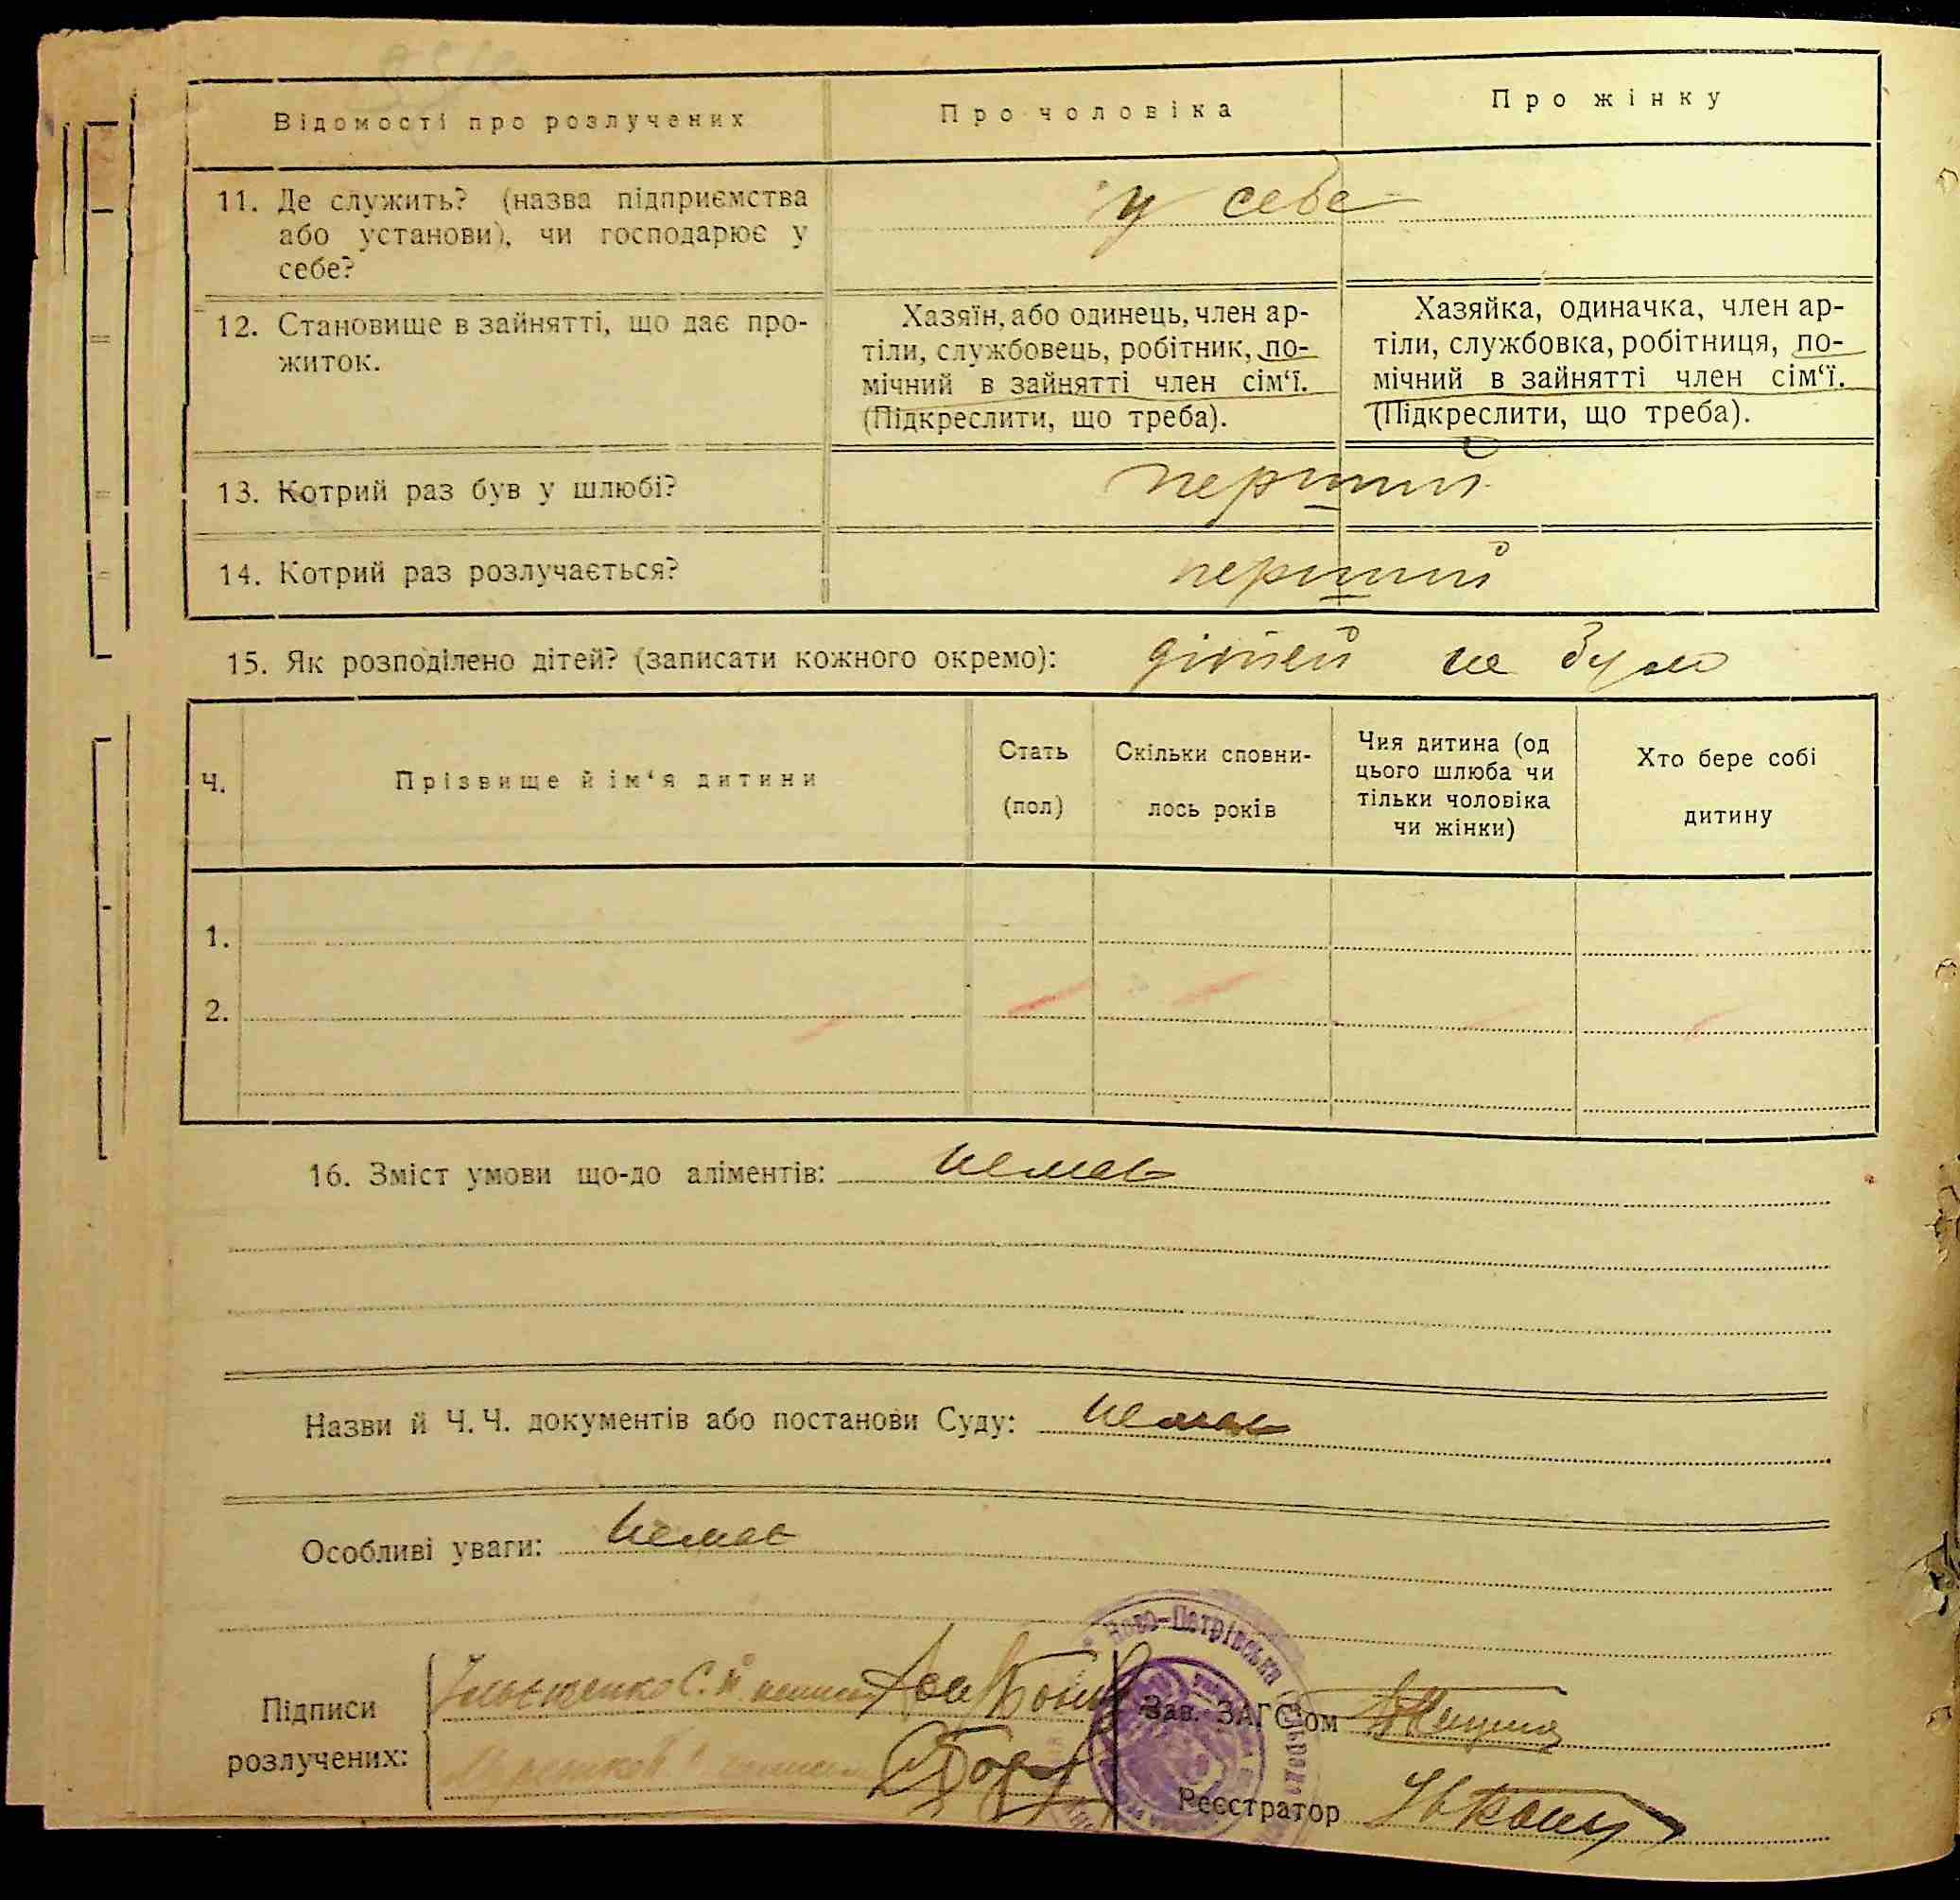 Відомості про розлучених
Про чоловіка
Про жінку
11. Де служить? (назва підприємства
або установи), чи господарює у
себе?
у себе
12. Становище в зайнятті, що дає про-
житок.
Хазяїн, або одинець, член ар-
тіли, службовець, робітник, по-
мічний в зайнятті член сім‘ї.
(Підкреслити, що треба).
Хазяйка, одиначка, член ар-
тіли, службовка, робітниця, по-
мічний в зайнятті член сім‘ї.
(Підкреслити, що треба).
13. Котрий раз був у шлюбі?
перший
14. Котрий раз розлучається?
перший
15. Як розподілено дітей? (записати кожного окремо): дітей не було
Ч.
Прізвище й ім‘я дитини
Стать
(пол)
Скільки сповни-
лось років
Чия дитина (од
цього шлюба чи
тільки чоловіка
чи жінки)
Хто бере собі
дитину
1.
2.
16. Зміст умови що-до аліментів: немає
Назви й Ч. Ч. документів або постанови Суду: немає
Особливі уваги: немає
Підписи
розлучених:
Ново-Петрівська
Зав. ЗАГС'ом
Реєстратор